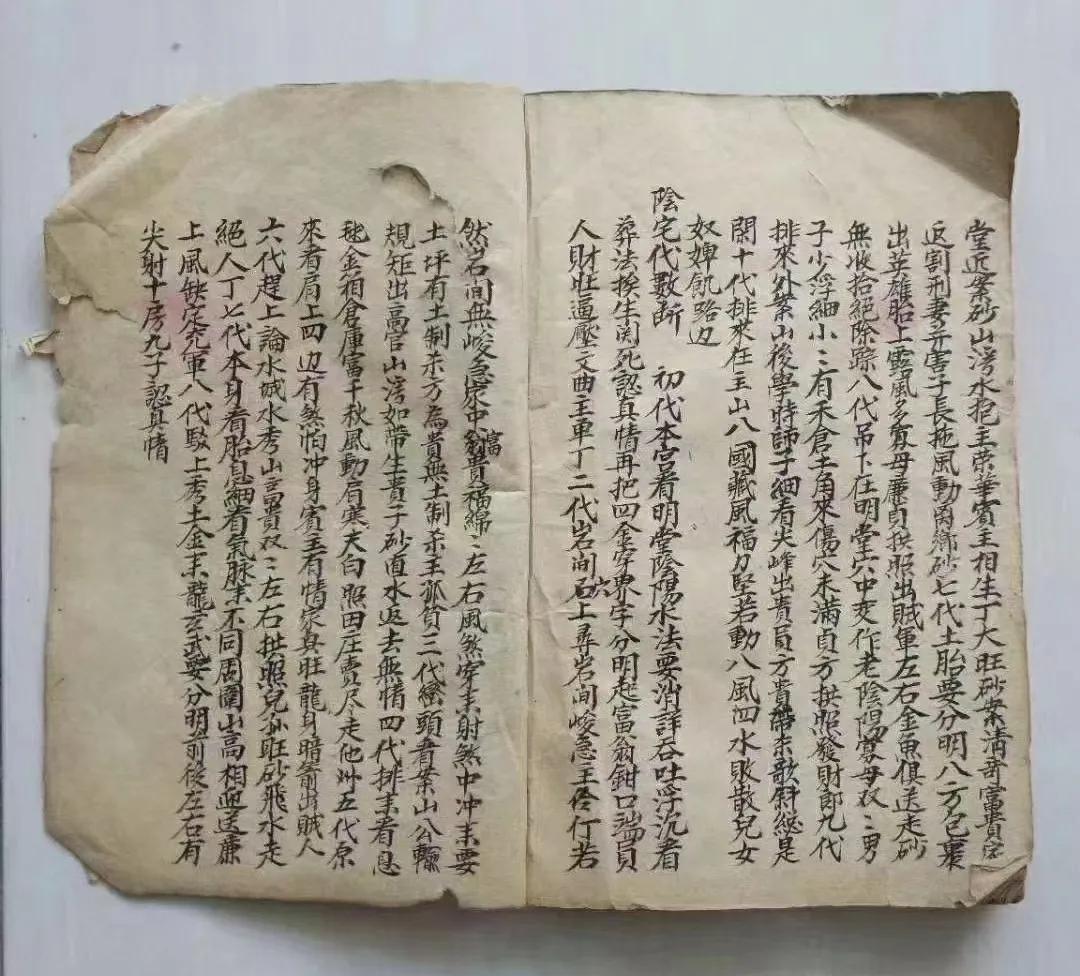 堂近案砂山湾水抱主荣華賓主相生丁大旺砂案清奇富貴客
返割刑妻弃害子長拖風動离鄉砂七代土胎要分明八方包裹
出英雄胎上露風多寡母廉貞拱照出賊軍左右金魚俱送走砂
無收拾絕除踪八代吊卜在明堂穴中交作老陰陽寡母双〻男
子少浮細小〻有禾倉土角來傷穴未滿貞方拱照發財郎九代
排來外案山後學時師子細看尖峰出貴員方貴帶禾歌斜総是
閑十代排來在主山八國藏風福力堅若動八風四水敗散兒女
奴婢飢路边
陰宅代數断 初代本宫看明堂陰陽水法要消詳吞吐浮沉看
葬法挨生関死認真情再把四金穿界字分明起富翁鉗口端員
人財旺逼壓文曲主車丁二代岩间穴石上尋岩间峻急主伶仃若
然岩间無峻急梁中富貴福綿〻左右風煞穿来射煞中冲来要
土坪有土制杀方為貴無土制杀主孤貧三代巒頭看案山公轇
規矩出高官山湾如帶生貴子砂直水返去無情四代排来看息
毬金箱倉庫富千秋風動肩寒天白照田庄賣尽走他州五代原
來看肩上四边有煞怕冲身賓主有情家具旺龍身暗箭出賊人
六代趕上論水城水秀山高貴双〻左右拱照兒孙旺砂飛水走
絕人丁七代本身看胎息細看氣脉生不同周圍山高相迎送廉
上風缺定充軍八代駁上秀土金来龍玄武要分明前後左右有
尖射十房九子認真情